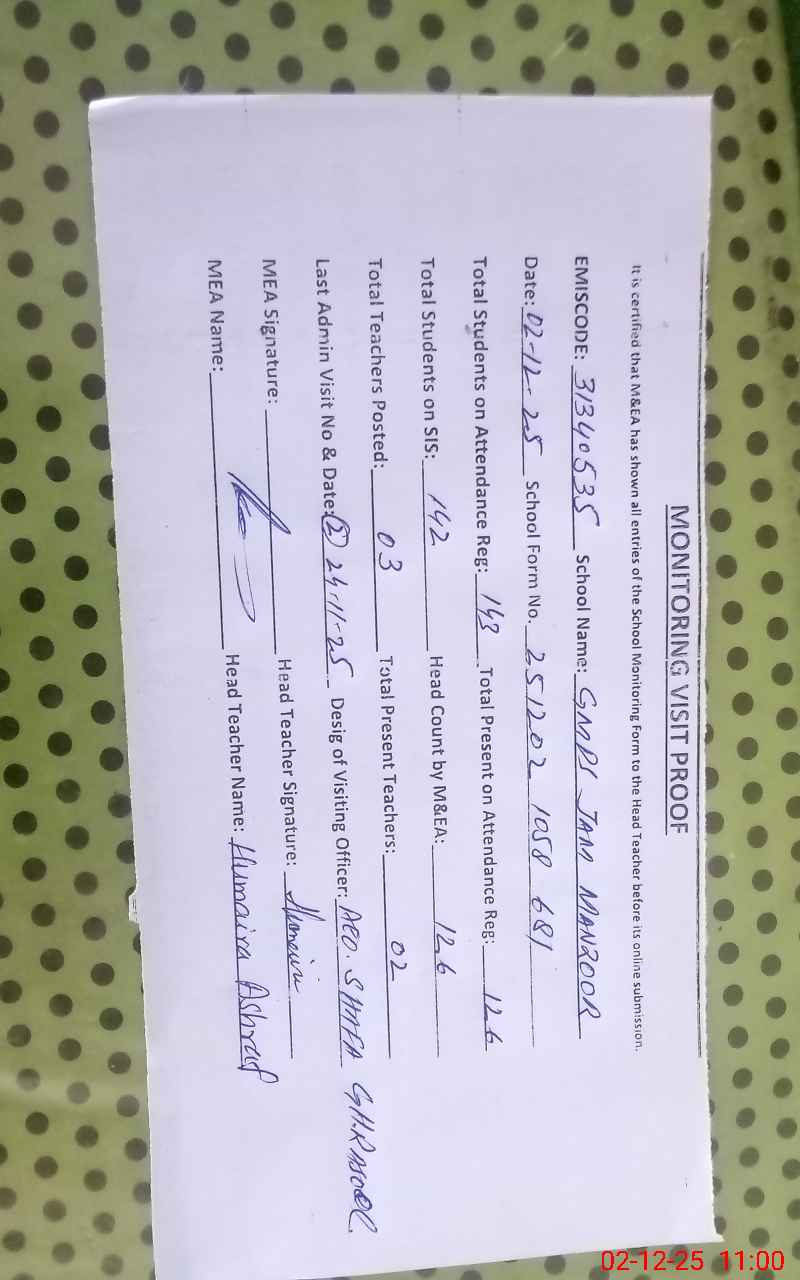 MONITORING VISIT PROOF
It is certified that M&EA has shown all entries of the School Monitoring Form to the Head Teacher before its online submission.
EMISCODE: 31340535 School Name: GMPS JAM MANZOOR
Date: 02-12-25 School Form No. 251202 1058 681
Total Students on Attendance Reg: 143 Total Present on Attendance Reg: 126
Total Students on SIS: 142 Head Count by M&EA: 126
Total Teachers Posted: 03 Total Present Teachers: 02
Last Admin Visit No & Date: (5) 24-11-25 Desig of Visiting Officer: AEO.
MEA Signature: Head Teacher Signature: Humaira
MEA Name: Head Teacher Name: Humaira Ashraf
02-12-25 11:00